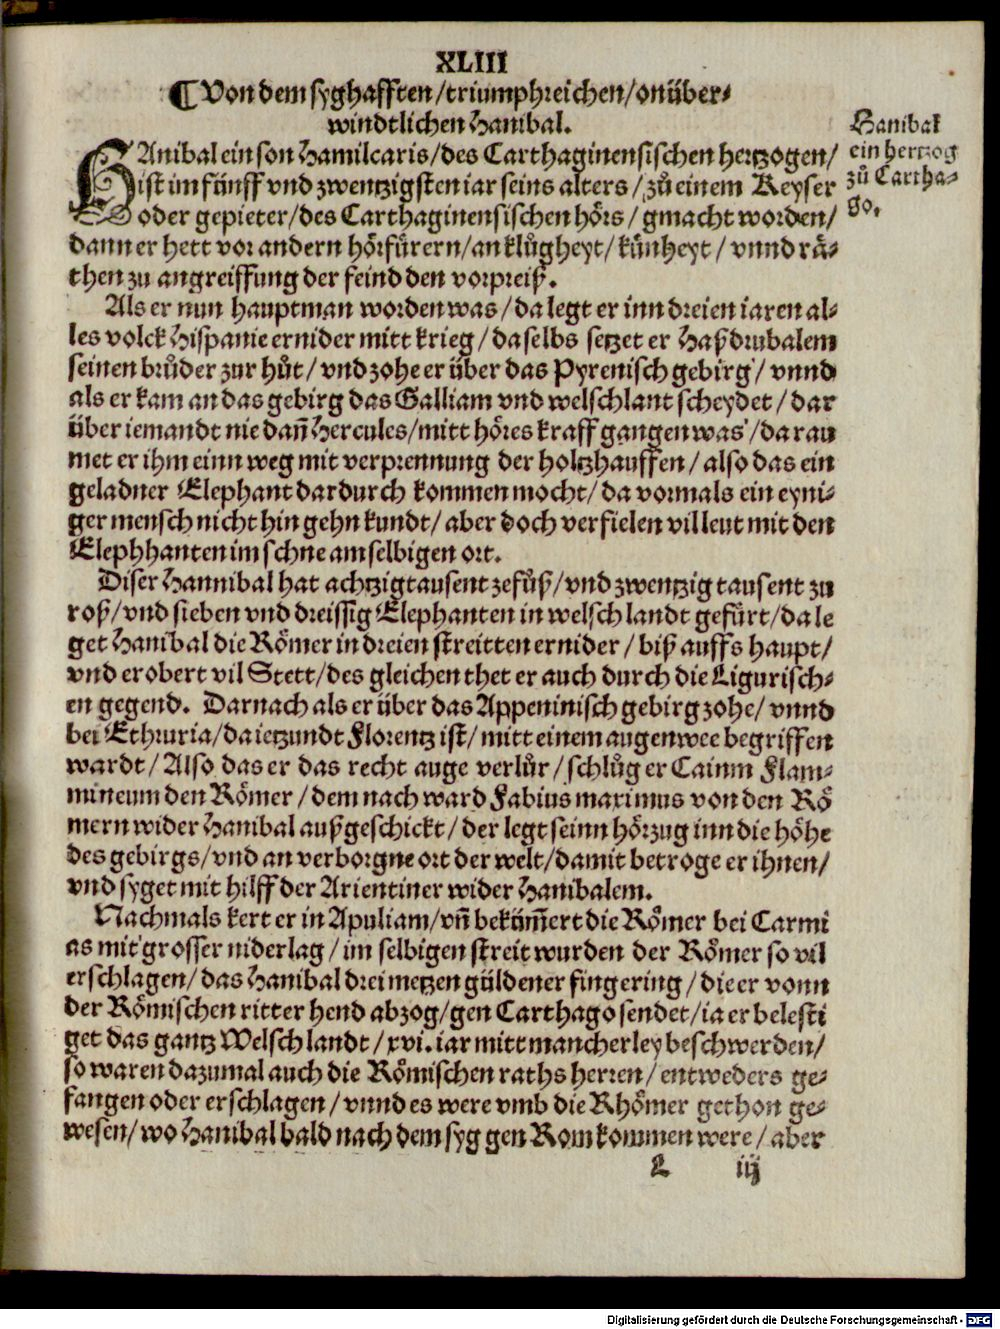 XLIII
¶ Von dem syghafften/triumphreichen/onüber⸗
windtlichen Hanibal.
HAnibal ein son Hamilcaris/des Carthaginensischen hertzogen/
ist im fünff vnd zwentzigsten iar seins alters/zů einem Keyser
oder gepieter/des Carthaginensischen hörs/gmacht worden/
dann er hett vor andern hörfürern/an klůgheyt/künheyt/vnnd rä⸗
then zu angreiffung der feind den vorpreiß.
Hanibal
ein hertzog
zů Cartha⸗
go.
Als er nun hauptman worden was/da legt er inn dreien iaren al⸗
les volck Hispanie ernider mitt krieg/daselbs setzet er Haßdrubalem
seinen brůder zur hůt/vnd zohe er über das Pyrenisch gebirg/vnnd
als er kam an das gebirg das Galliam vnd welschlant scheydet/dar
über iemandt nie dañ Hercules/mitt höres krafft gangen was/da rau
met er ihm einn weg mit verprennung der holtzhauffen/also das ein
geladner Elephant dardurch kommen mocht/da vormals ein eyni⸗
ger mensch nicht hin gehn kundt/aber doch verfielen vil leut mit den
Elephhanten im schne am selbigen ort.
Diser Hannibal hat achtzigtausent zefůß/vnd zwentzig tausent zu
roß/vnd sieben vnd dreissig Elephanten in welsch landt gefürt/da le
get Hanibal die Römer in dreien streitten ernider/biß auffs haupt/
vnd erobert vil Stett/des gleichen thet er auch durch die Ligurisch⸗
en gegend. Darnach als er über das Appeninisch gebirg zohe/vnnd
bei Ethruria/da ietzundt Florentz ist/mitt einem augenwee begriffen
wardt/Also das er das recht auge verlůr/schlůg er Caium Flam⸗
mineum den Römer/dem nach ward Fabius maximus von den Rö
mern wider Hanibal außgeschickt/der legt seinn hörzug inn die höhe
des gebirgs/vnd an verborgne ort der welt/damit betroge er ihnen/
vnd syget mit hilff der Arientiner wider Hanibalem.
Nachmals kert er in Apuliam/vñ bekümert die Römer bei Carmi
as mit grosser niderlag/im selbigen streit wurden der Römer so vil
erschlagen/das Hanibal drei metzen güldener fingering/die er vonn
der Römischen ritter hend abzog/gen Carthago sendet/ia er belesti
get das gantz Welsch landt/xvi. iar mitt mancherley beschwerden/
so waren dazumal auch die Römischen raths herren/entweders ge⸗
fangen oder erschlagen/vnnd es were vmb die Rhömer gethon ge⸗
wesen/wo Hanibal bald nach dem syg gen Rom kommen were/aber
L iij
Digitalisierung gefördert durch die Deutsche Forschungsgemeinschaft - DFG